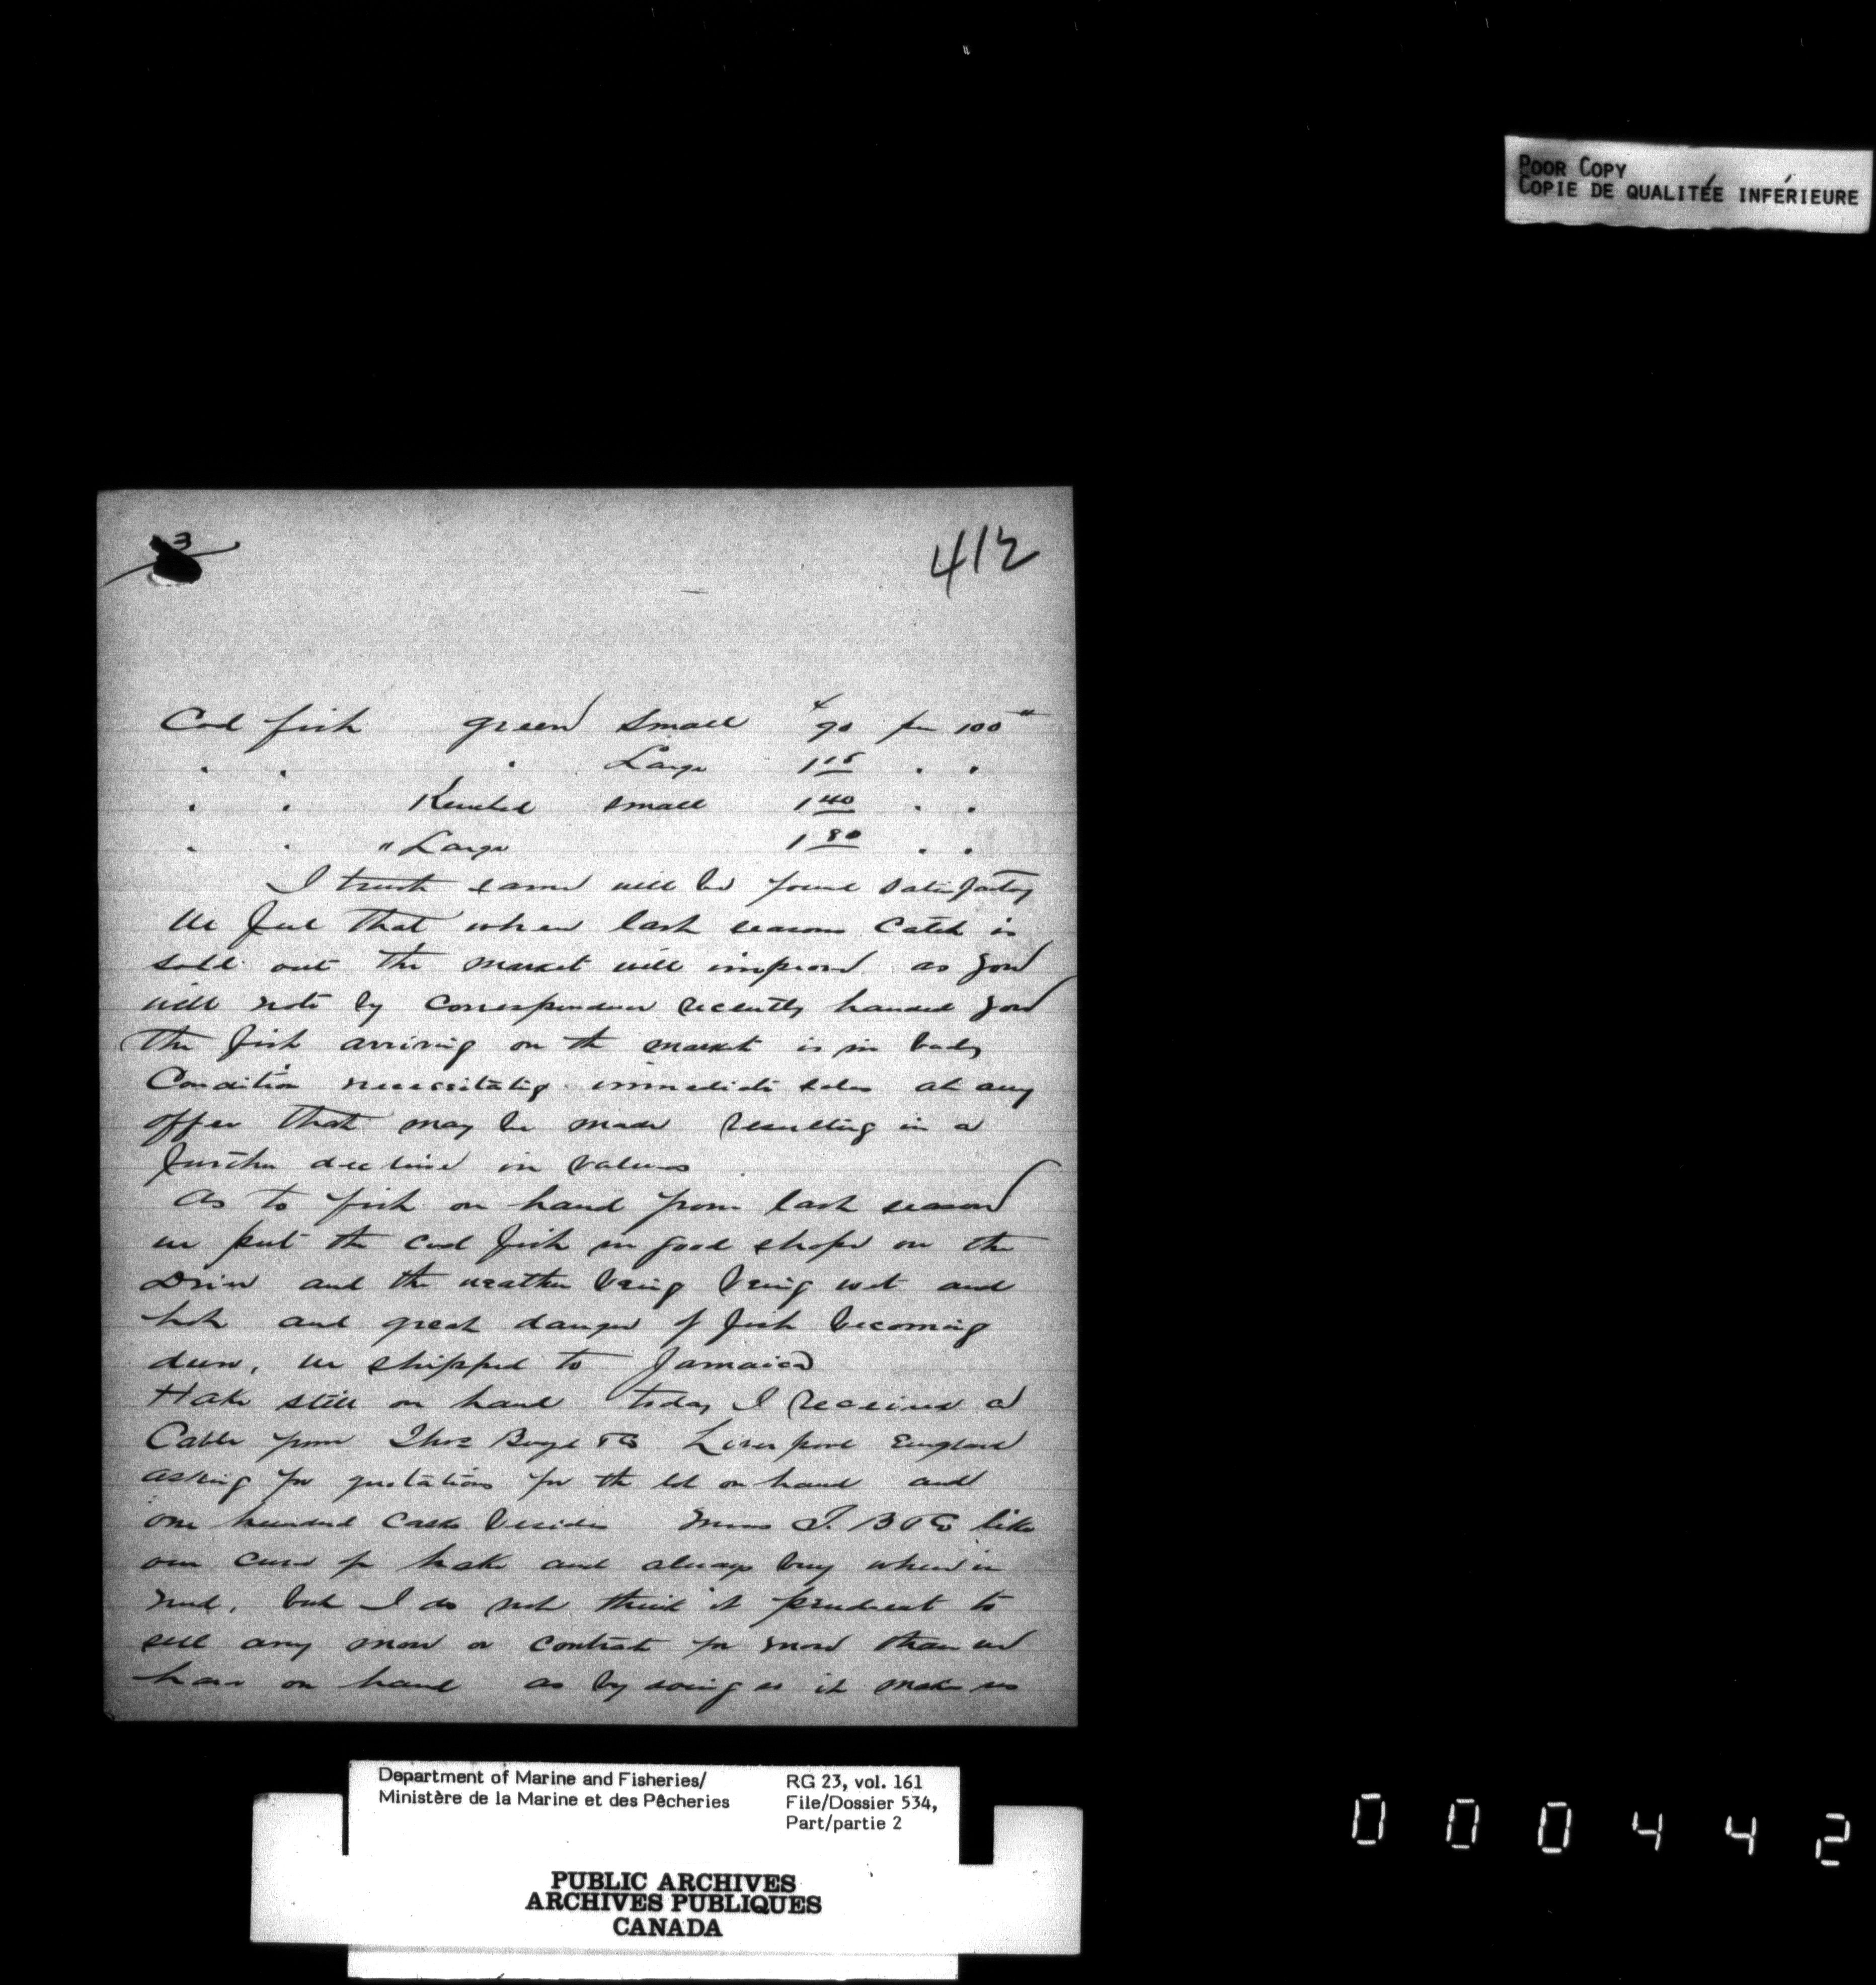 POOR COPY
COPIE DE QUALITÉE INFÉRIEURE
3
412
Cod fish green small 90 per 100#
" " " Large 1 15 " "
" " Kenched small 1 40 " "
" " " Large 1 80 " "
I trust same will be found satisfactory
We feel that when last seasons catch is
sold out the market will improve as you
will note by correspondence recently handed you
the fish arriving on the market is in bad
Condition necessitating immediate sales at any
offer that may be made resulting in a
further decline in values
As to fish on hand from last season
we put the cod fish in good shape on the
Drive and the weather being being wet and
hot and great danger of fish becoming
dun, we shipped to Jamaica
Hake still on hand today I received a
Cable from Thos Boyd & Co Liverpool England
asking for quotations for the lot on hand and
one hundred casks besides Messrs T. B & Co like
our cure of hake and always buy when in
need, but I do not think it prudent to
sell any more or contract for more than we
have on hand as by doing so it makes us
Department of Marine and Fisheries/
Ministère de la Marine et des Pêcheries
RG 23, vol. 161
File/Dossier 534,
Part/partie 2
PUBLIC ARCHIVES
ARCHIVES PUBLIQUES
CANADA
000442